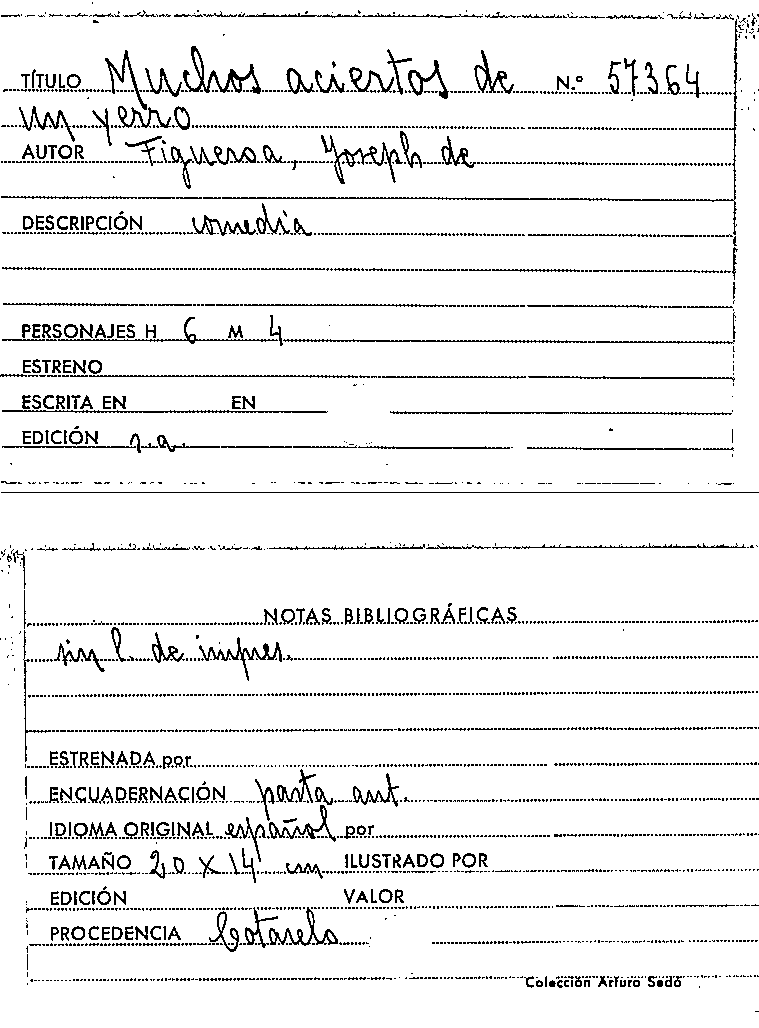 TÍTULO Muchos aciertos de N.º 57364
un yerro
AUTOR Figueroa, Joseph de
DESCRIPCIÓN comedia
PERSONAJES H 6 M 4
ESTRENO
ESCRITA EN EN
EDICIÓN s.a.
NOTAS BIBLIOGRÁFICAS
sin l. de impres.
ESTRENADA por
ENCUADERNACIÓN pasta ant.
IDIOMA ORIGINAL español por
TAMAÑO 20 X 14 cm ILUSTRADO POR
EDICIÓN VALOR
PROCEDENCIA Cotarelo
Colección Arturo Sedó